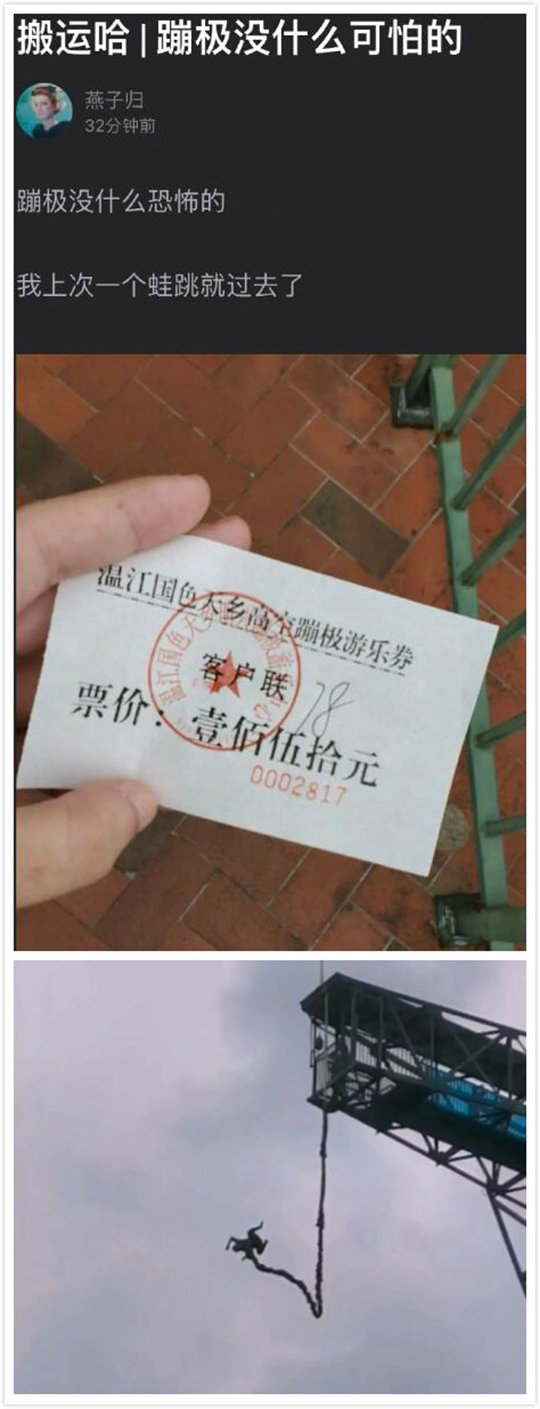 搬运哈 | 蹦极没什么可怕的
燕子归
32分钟前
蹦极没什么恐怖的
我上次一个蛙跳就过去了
温江国色天乡高空蹦极游乐券
客户联
78
票价：壹佰伍拾元
0002817